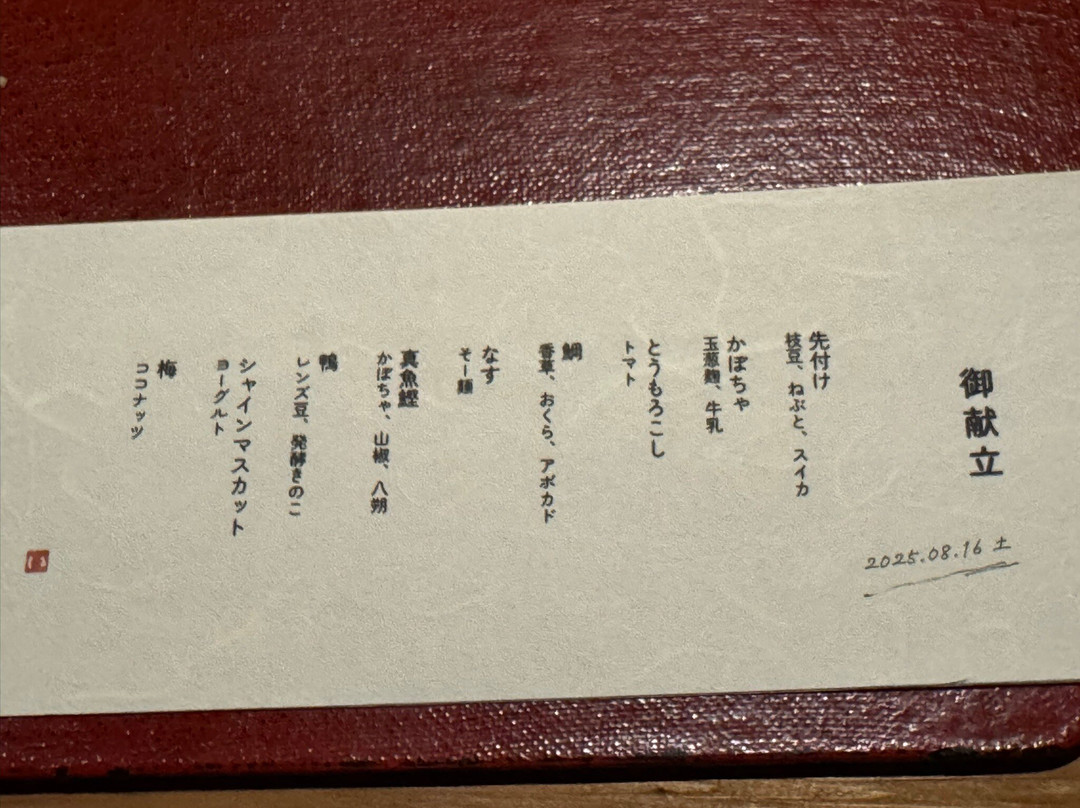 御献立
2025.08.16 土
先付け
枝豆、ねぶと、スイカ
かぼちゃ
玉葱麹、牛乳
とうもろこし
トマト
鯛
香草、おくら、アボカド
なす
そー麺
真魚鰹
かぼちゃ、山椒、八朔
鴨
レンズ豆、発酵きのこ
シャインマスカット
ヨーグルト
梅
ココナッツ